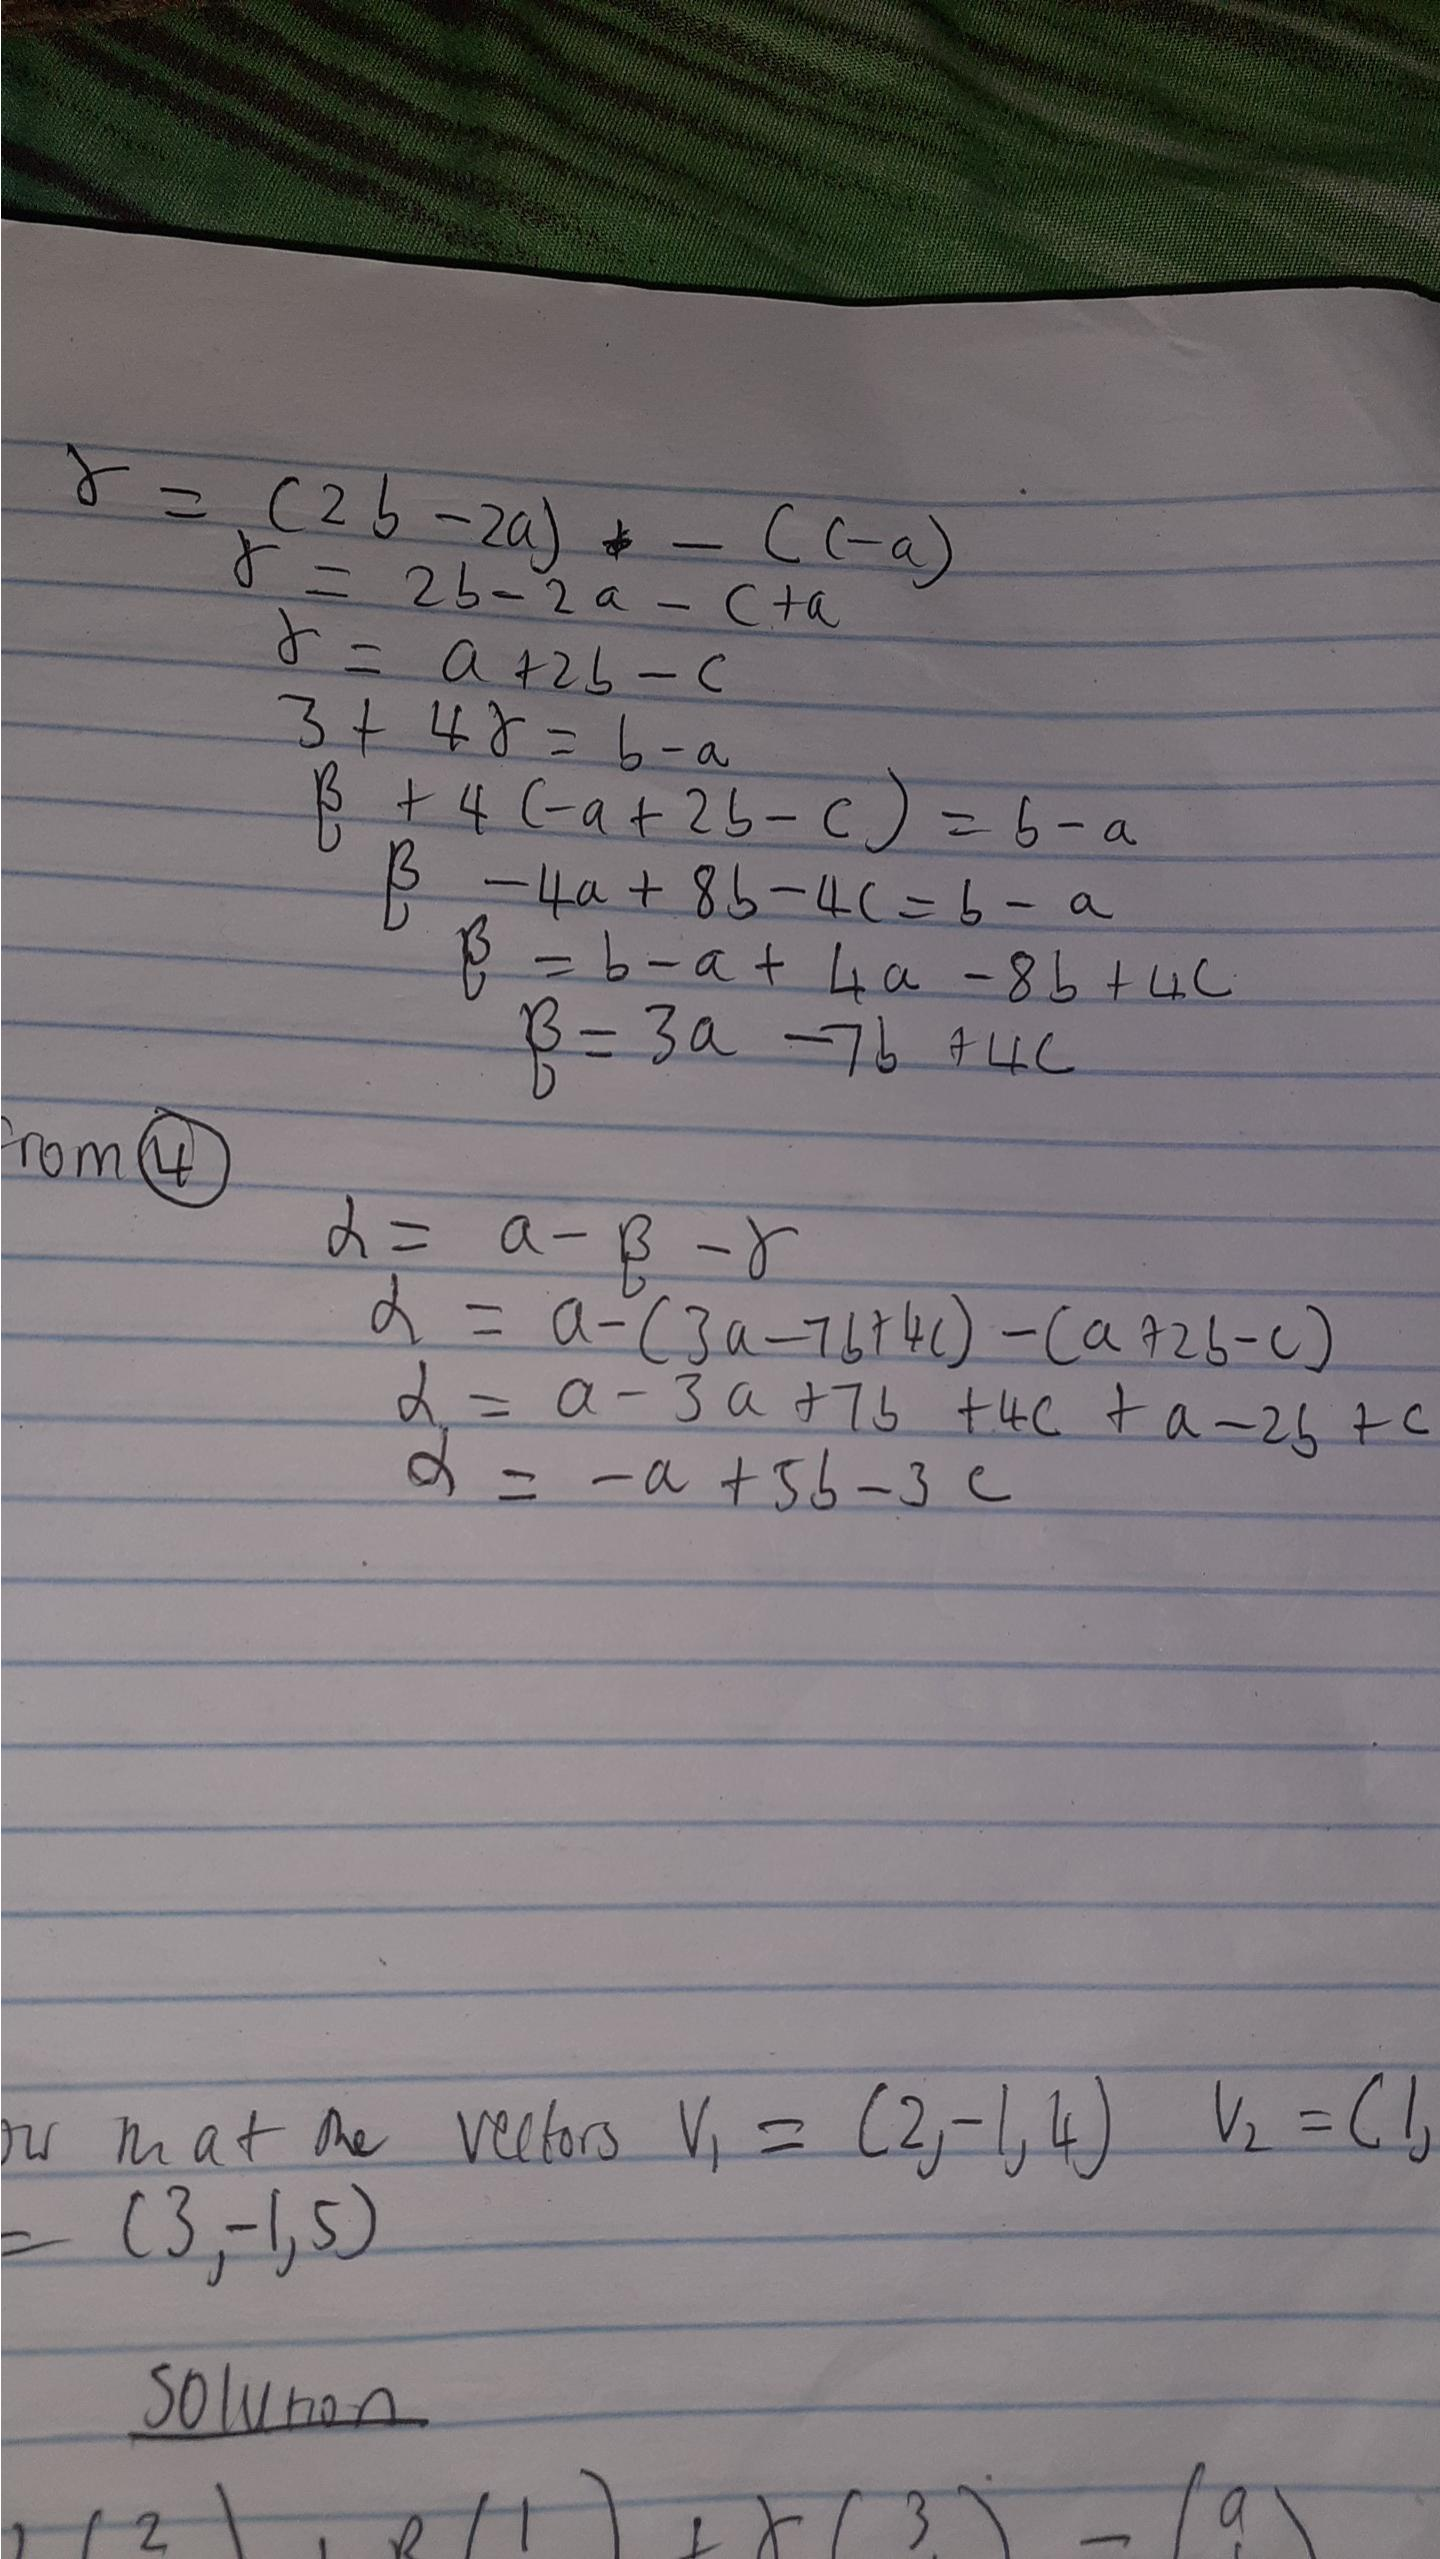 γ = (2b - 2a) - (c-a)
γ = 2b - 2a - c + a
γ = a + 2b - c
3 + 4γ = b - a
β + 4(-a + 2b - c) = b - a
β - 4a + 8b - 4c = b - a
β = b - a + 4a - 8b + 4c
β = 3a - 7b + 4c
from ④
α = a - β - γ
α = a - (3a - 7b + 4c) - (a + 2b - c)
α = a - 3a + 7b + 4c + a - 2b + c
α = -a + 5b - 3c
ow that the vectors V₁ = (2, -1, 4) V₂ = (1,
= (3, -1, 5)
Solution
(2) + β(1) + γ(3) = (a)